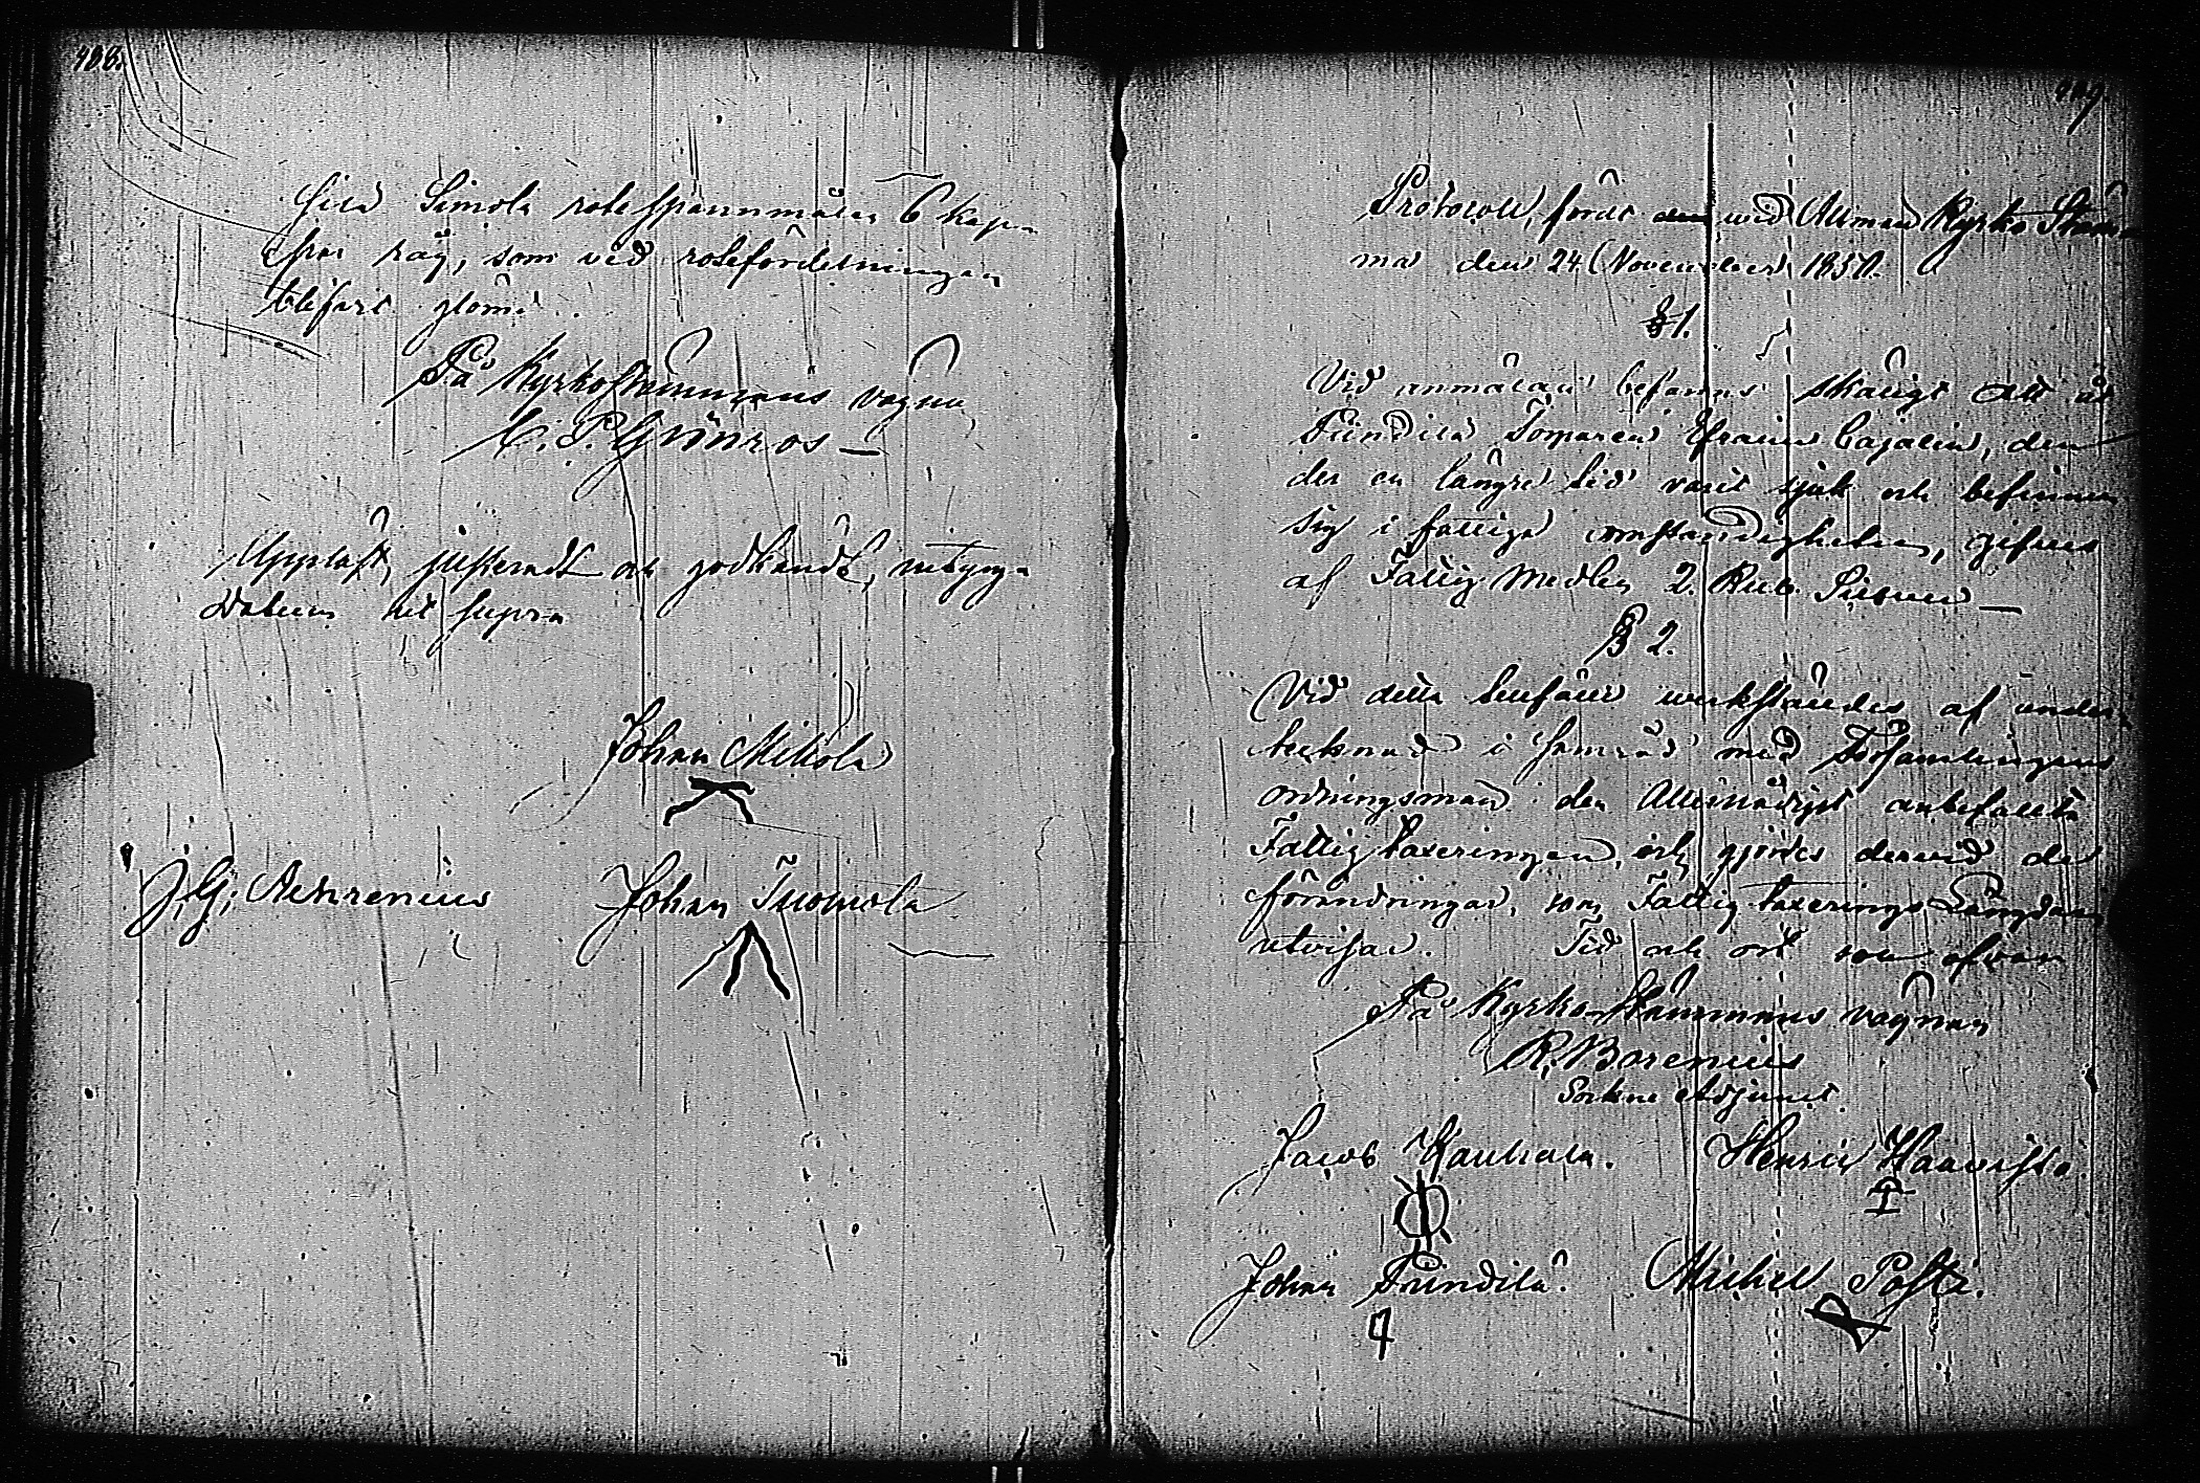 408.
Simola rotespannmålen 6 kap-
par råg, som vid rotefördelningen
blifvit glömd.
På Kyrkostämmans vägnar
C. P. Grönroos
Uppläst, justeradt och godkändt, intyga
Datum ut supra
Johan Mikola
J. G. Ahrenius Johan Tuomola
409
Protocoll, fördt wid Allmän Kyrko Stäm-
ma den 24 November 1850.
§ 1.
Vid anmälan befanns skäligt att åt
Pundila Tomaren Efraim Cajalin,
der en längre tid varit sjuk och befinner
sig i fattiga omständigheter, gifves
af Fattig Medlen 2. Rub. Silver
§ 2.
Vid detta tillfälle werkställdes af under-
tecknad i samråd med Församlingens
ordningsmän den Allernådigst anbefallda
Fattig taxeringen, och gjordes dervid de
förändringar, som Fattig taxerings Längden
utvisar. Tid och ort som ofvan
På Kyrko Stämmans vägnar
R. Borenius
Sockne Adjunct.
Jacob Kauhala. Henric Haavisto.
Johan Pundila. Michel Posti.